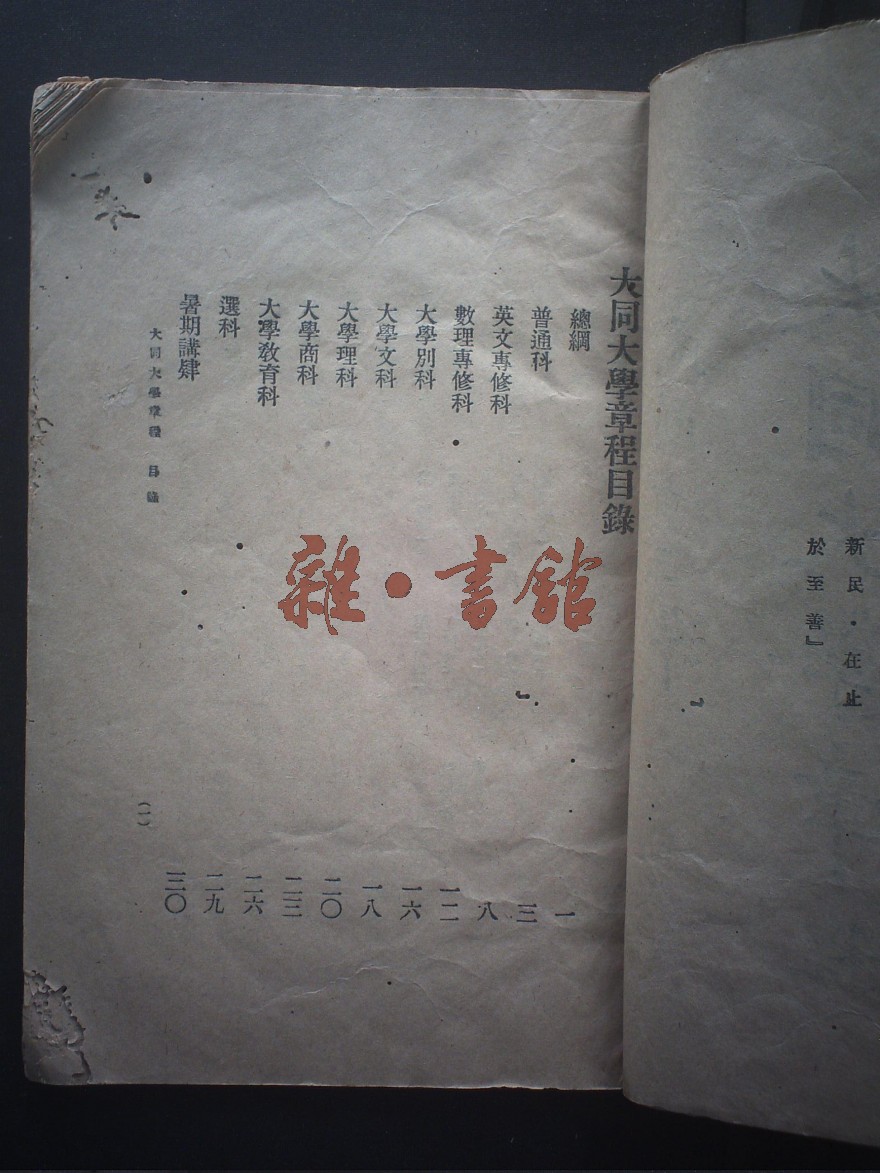 新民·在止
於至善』
大同大學章程目錄
總綱 一
普通科 三
英文專修科 八
數理專修科 一二
大學別科 一六
大學文科 一八
大學理科 二〇
大學商科 二三
大學教育科 二六
選科 二九
暑期講肄 三〇
大同大學章程 目錄 (一)
雜·書館